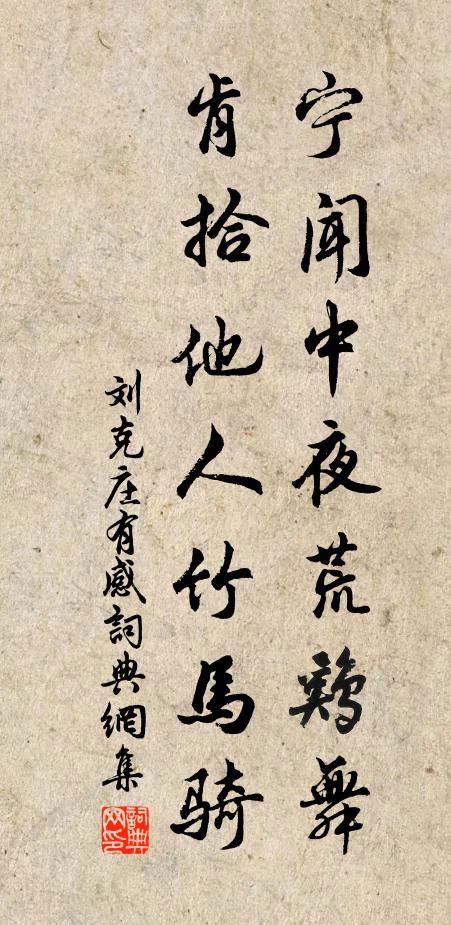 宁闻中夜荒鷄舞
肯拾他人竹馬骑
刘克庄有感詞典網集
詞典网印